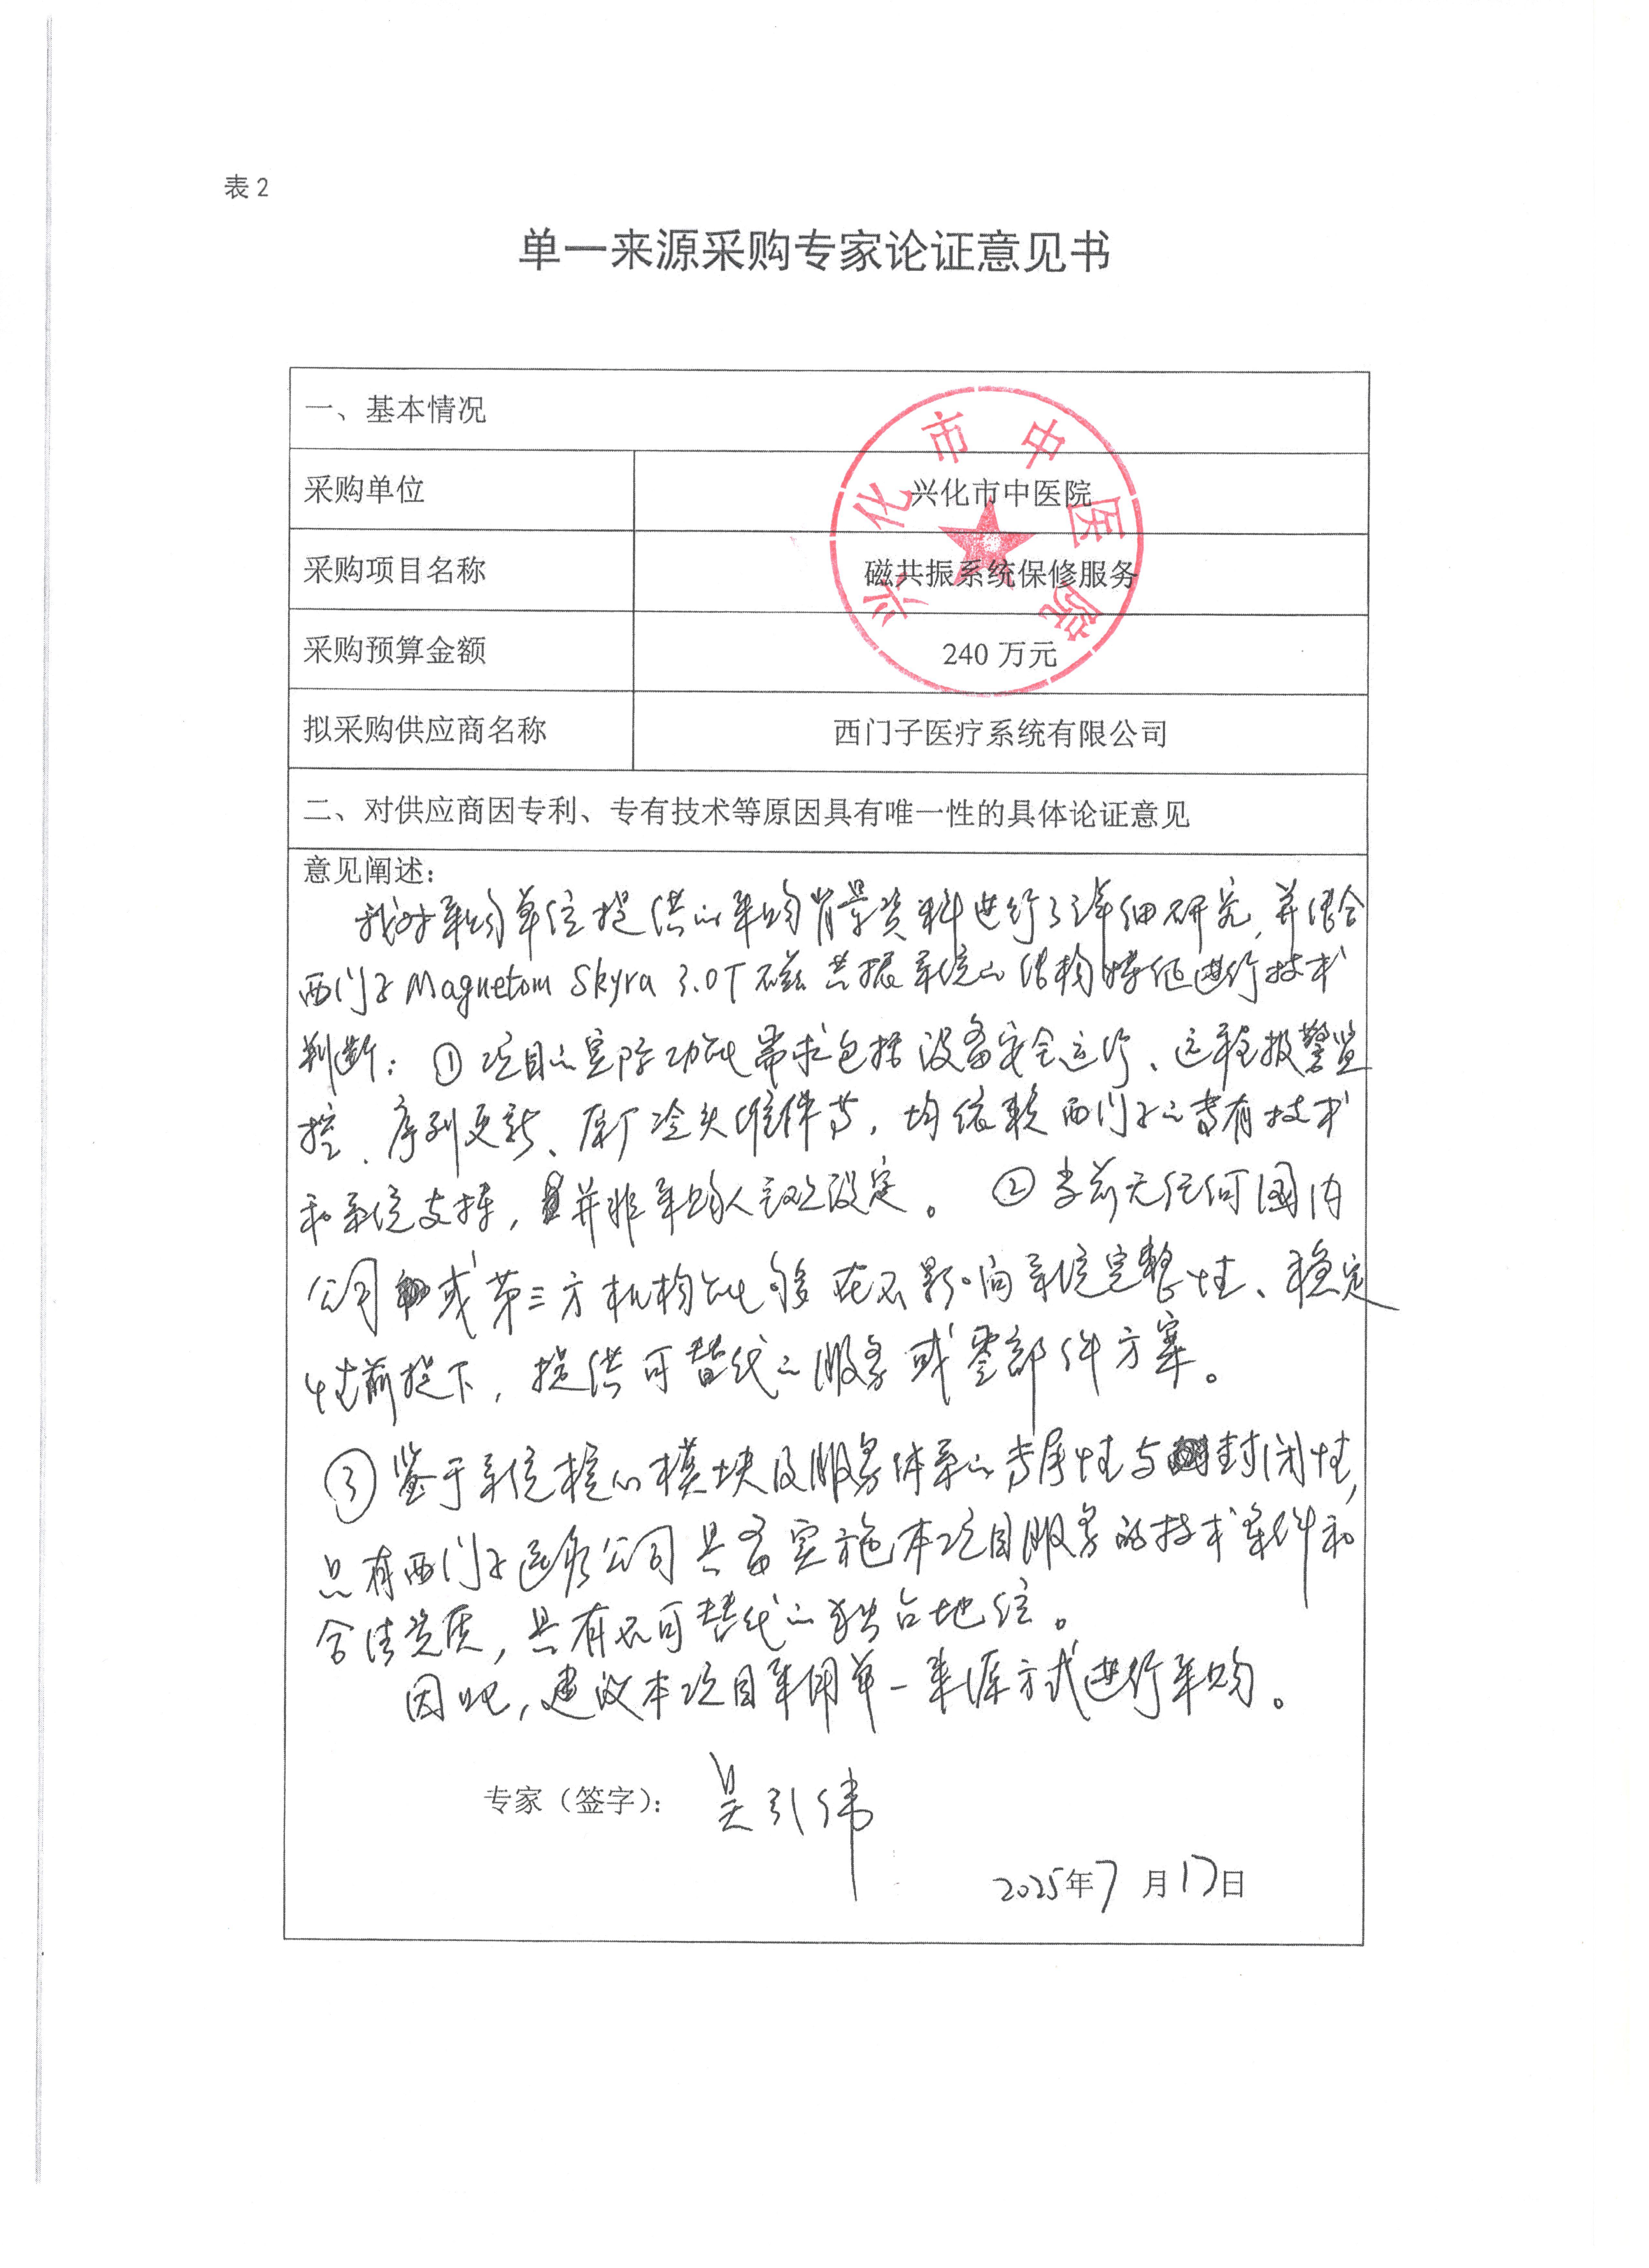 表 2
单一来源采购专家论证意见书
一、基本情况
采购单位
兴化市中医院
采购项目名称
磁共振系统保修服务
采购预算金额
240 万元
拟采购供应商名称
西门子医疗系统有限公司
兴化市中医院
二、对供应商因专利、专有技术等原因具有唯一性的具体论证意见
意见阐述：
我对采购单位提供的采购背景资料进行了详细研究，并结合
西门子Magnetom Skyra 3.0T磁共振系统的结构特征进行技术
判断：①项目的实际功能需求包括设备安全运行、远程报警监
控、序列更新、原厂冷头维保等，均依赖西门子的专有技术
和系统支持，并非采购人主观设定。②当前无任何国内
公司或第三方机构能够在不影响系统完整性、稳定
性前提下，提供可替代的服务或零部件方案。
③鉴于系统核心模块及服务体系的专属性与封闭性，
只有西门子医疗公司具备实施本项目服务的技术条件和
合法资质，具有不可替代的独占地位。
因此，建议本项目采用单一来源方式进行采购。
专家（签字）： 吴引伟
2025年7月17日